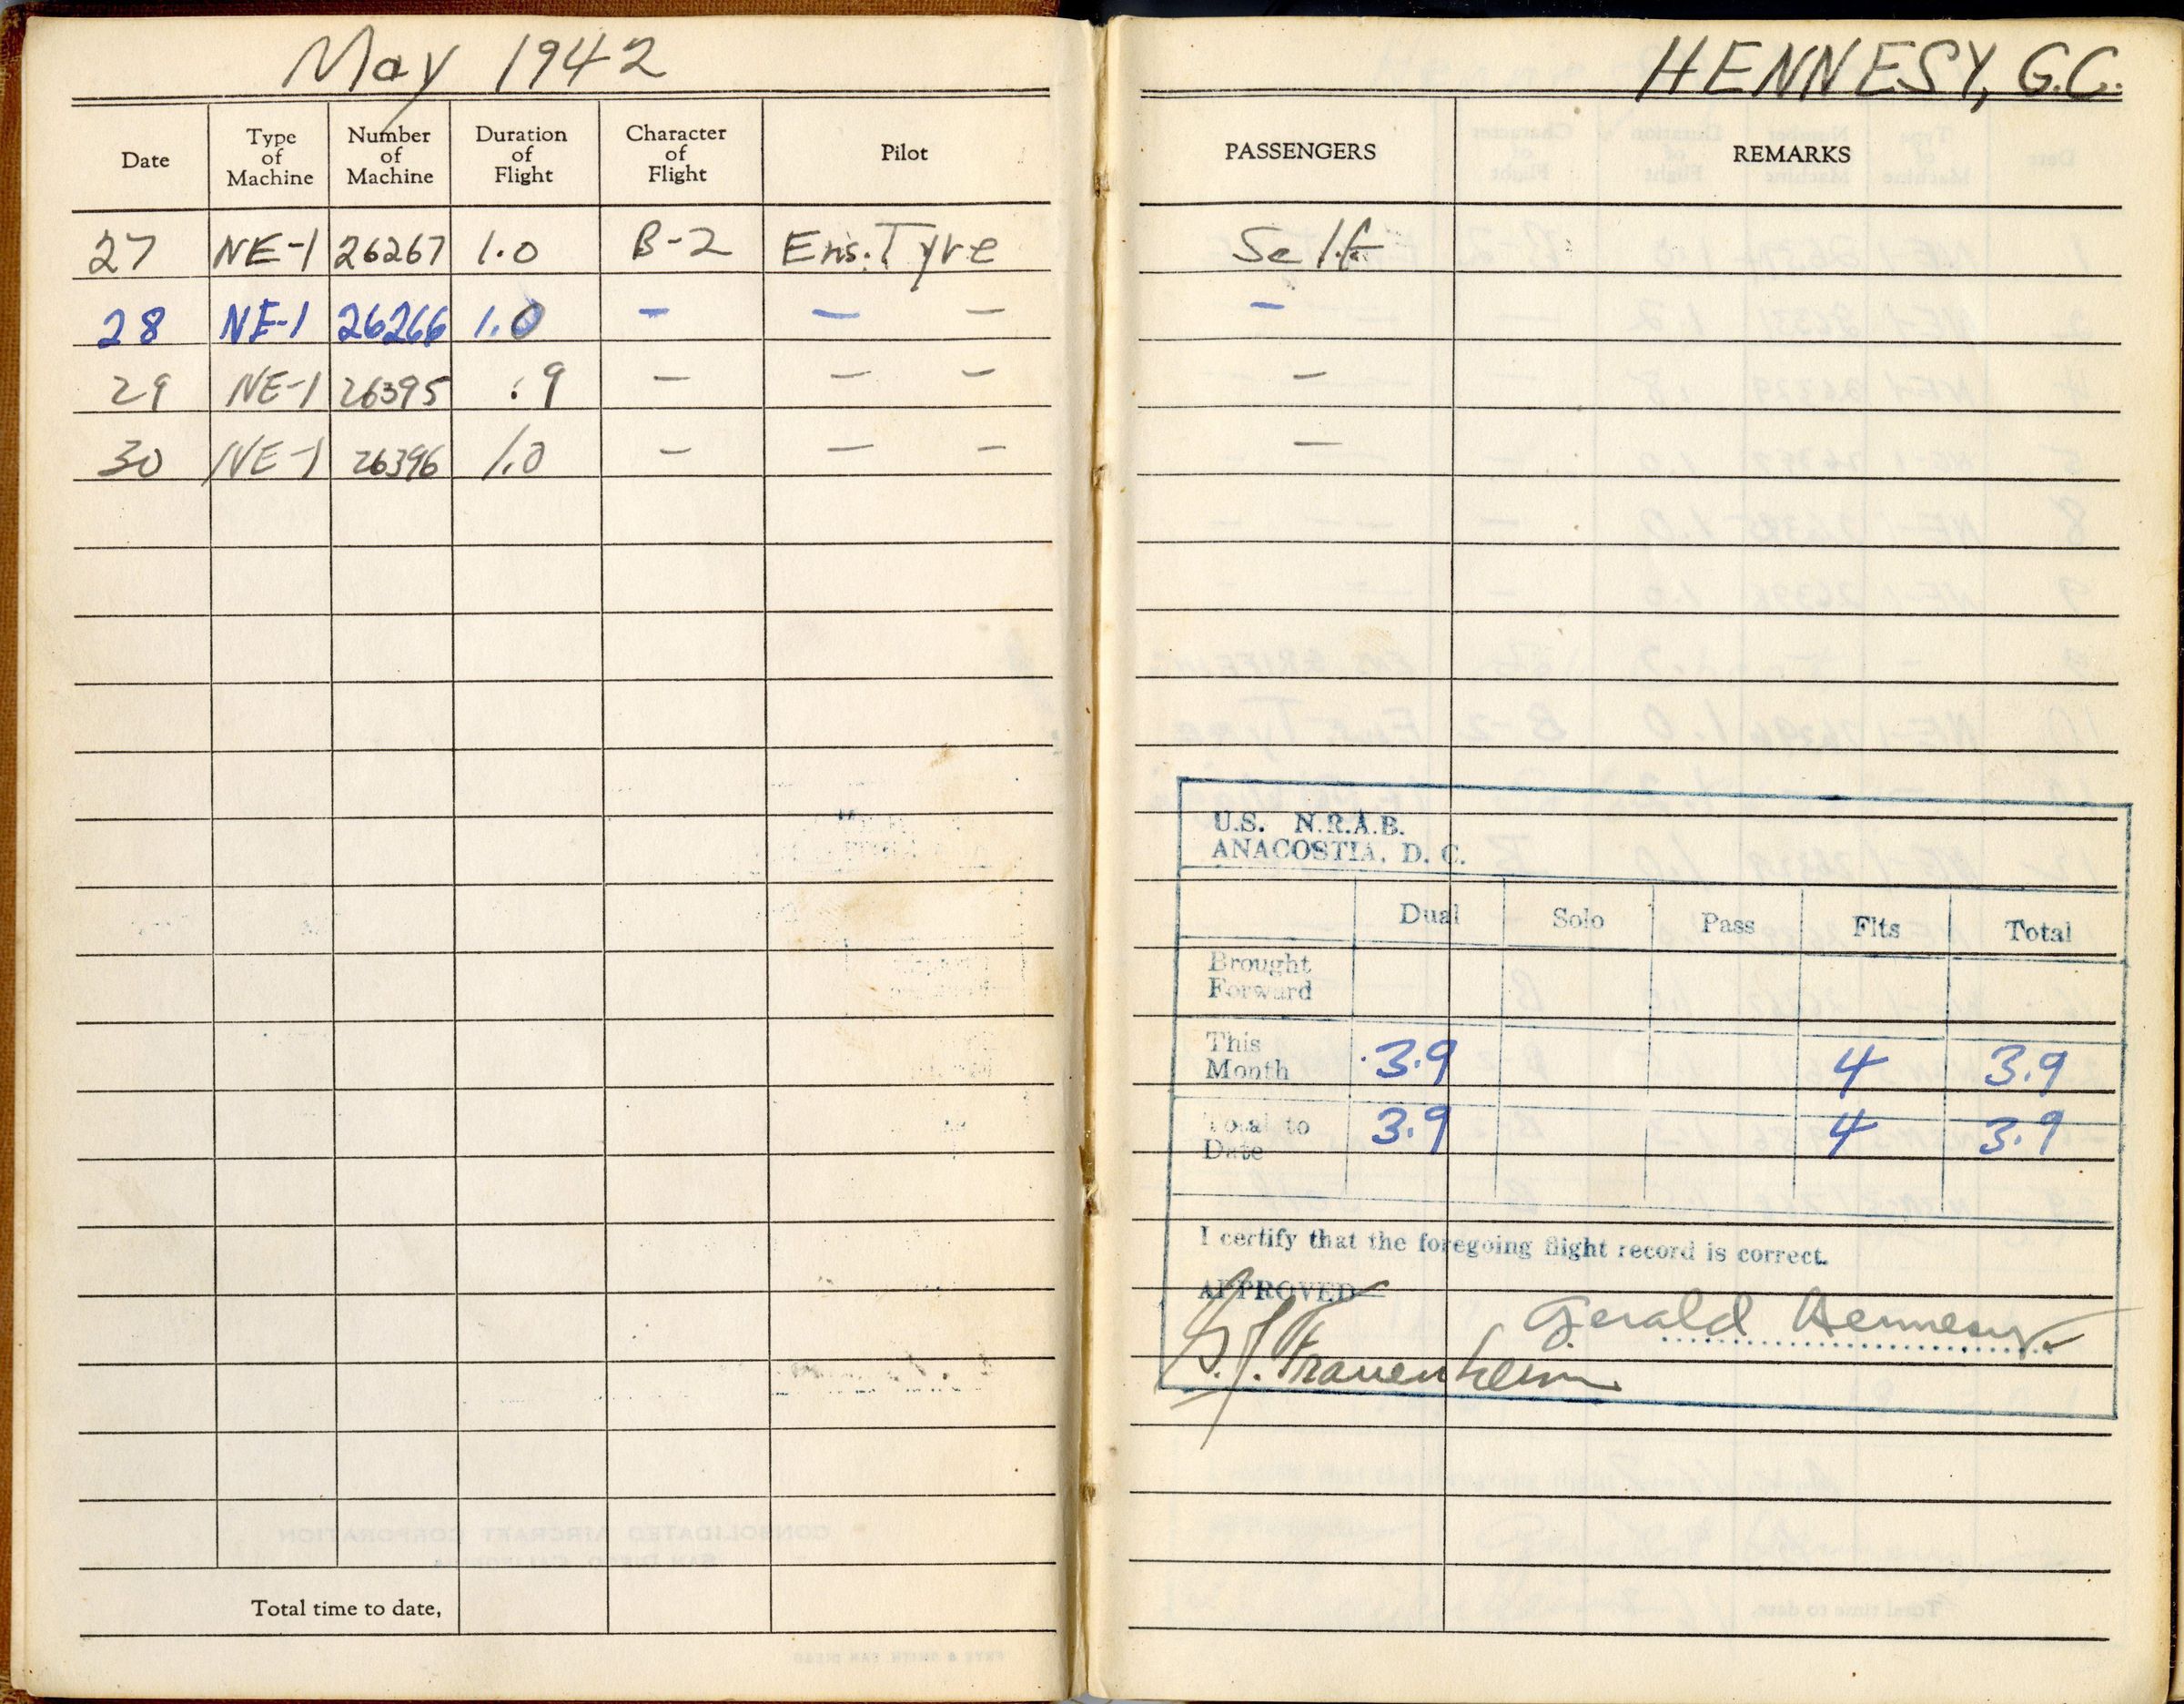 May 1942
Date Type of Machine Number of Machine Duration of Flight Character of Flight Pilot
27 NE-1 26267 1.0 B-2 Ens. Tyre
28 NE-1 26266 1.0 - - -
29 NE-1 26395 .9 - - -
30 NE-1 26396 1.0 - - -
Total time to date,
HENNESY, G.C.
PASSENGERS REMARKS
Self
-
-
-
U.S. N.R.A.B.
ANACOSTIA, D. C.
Dual Solo Pass Flts Total
Brought Forward
This Month 3.9 4 3.9
Total to Date 3.9 4 3.9
I certify that the foregoing flight record is correct.
APPROVED
Gerald Hennesy
Frauenheim